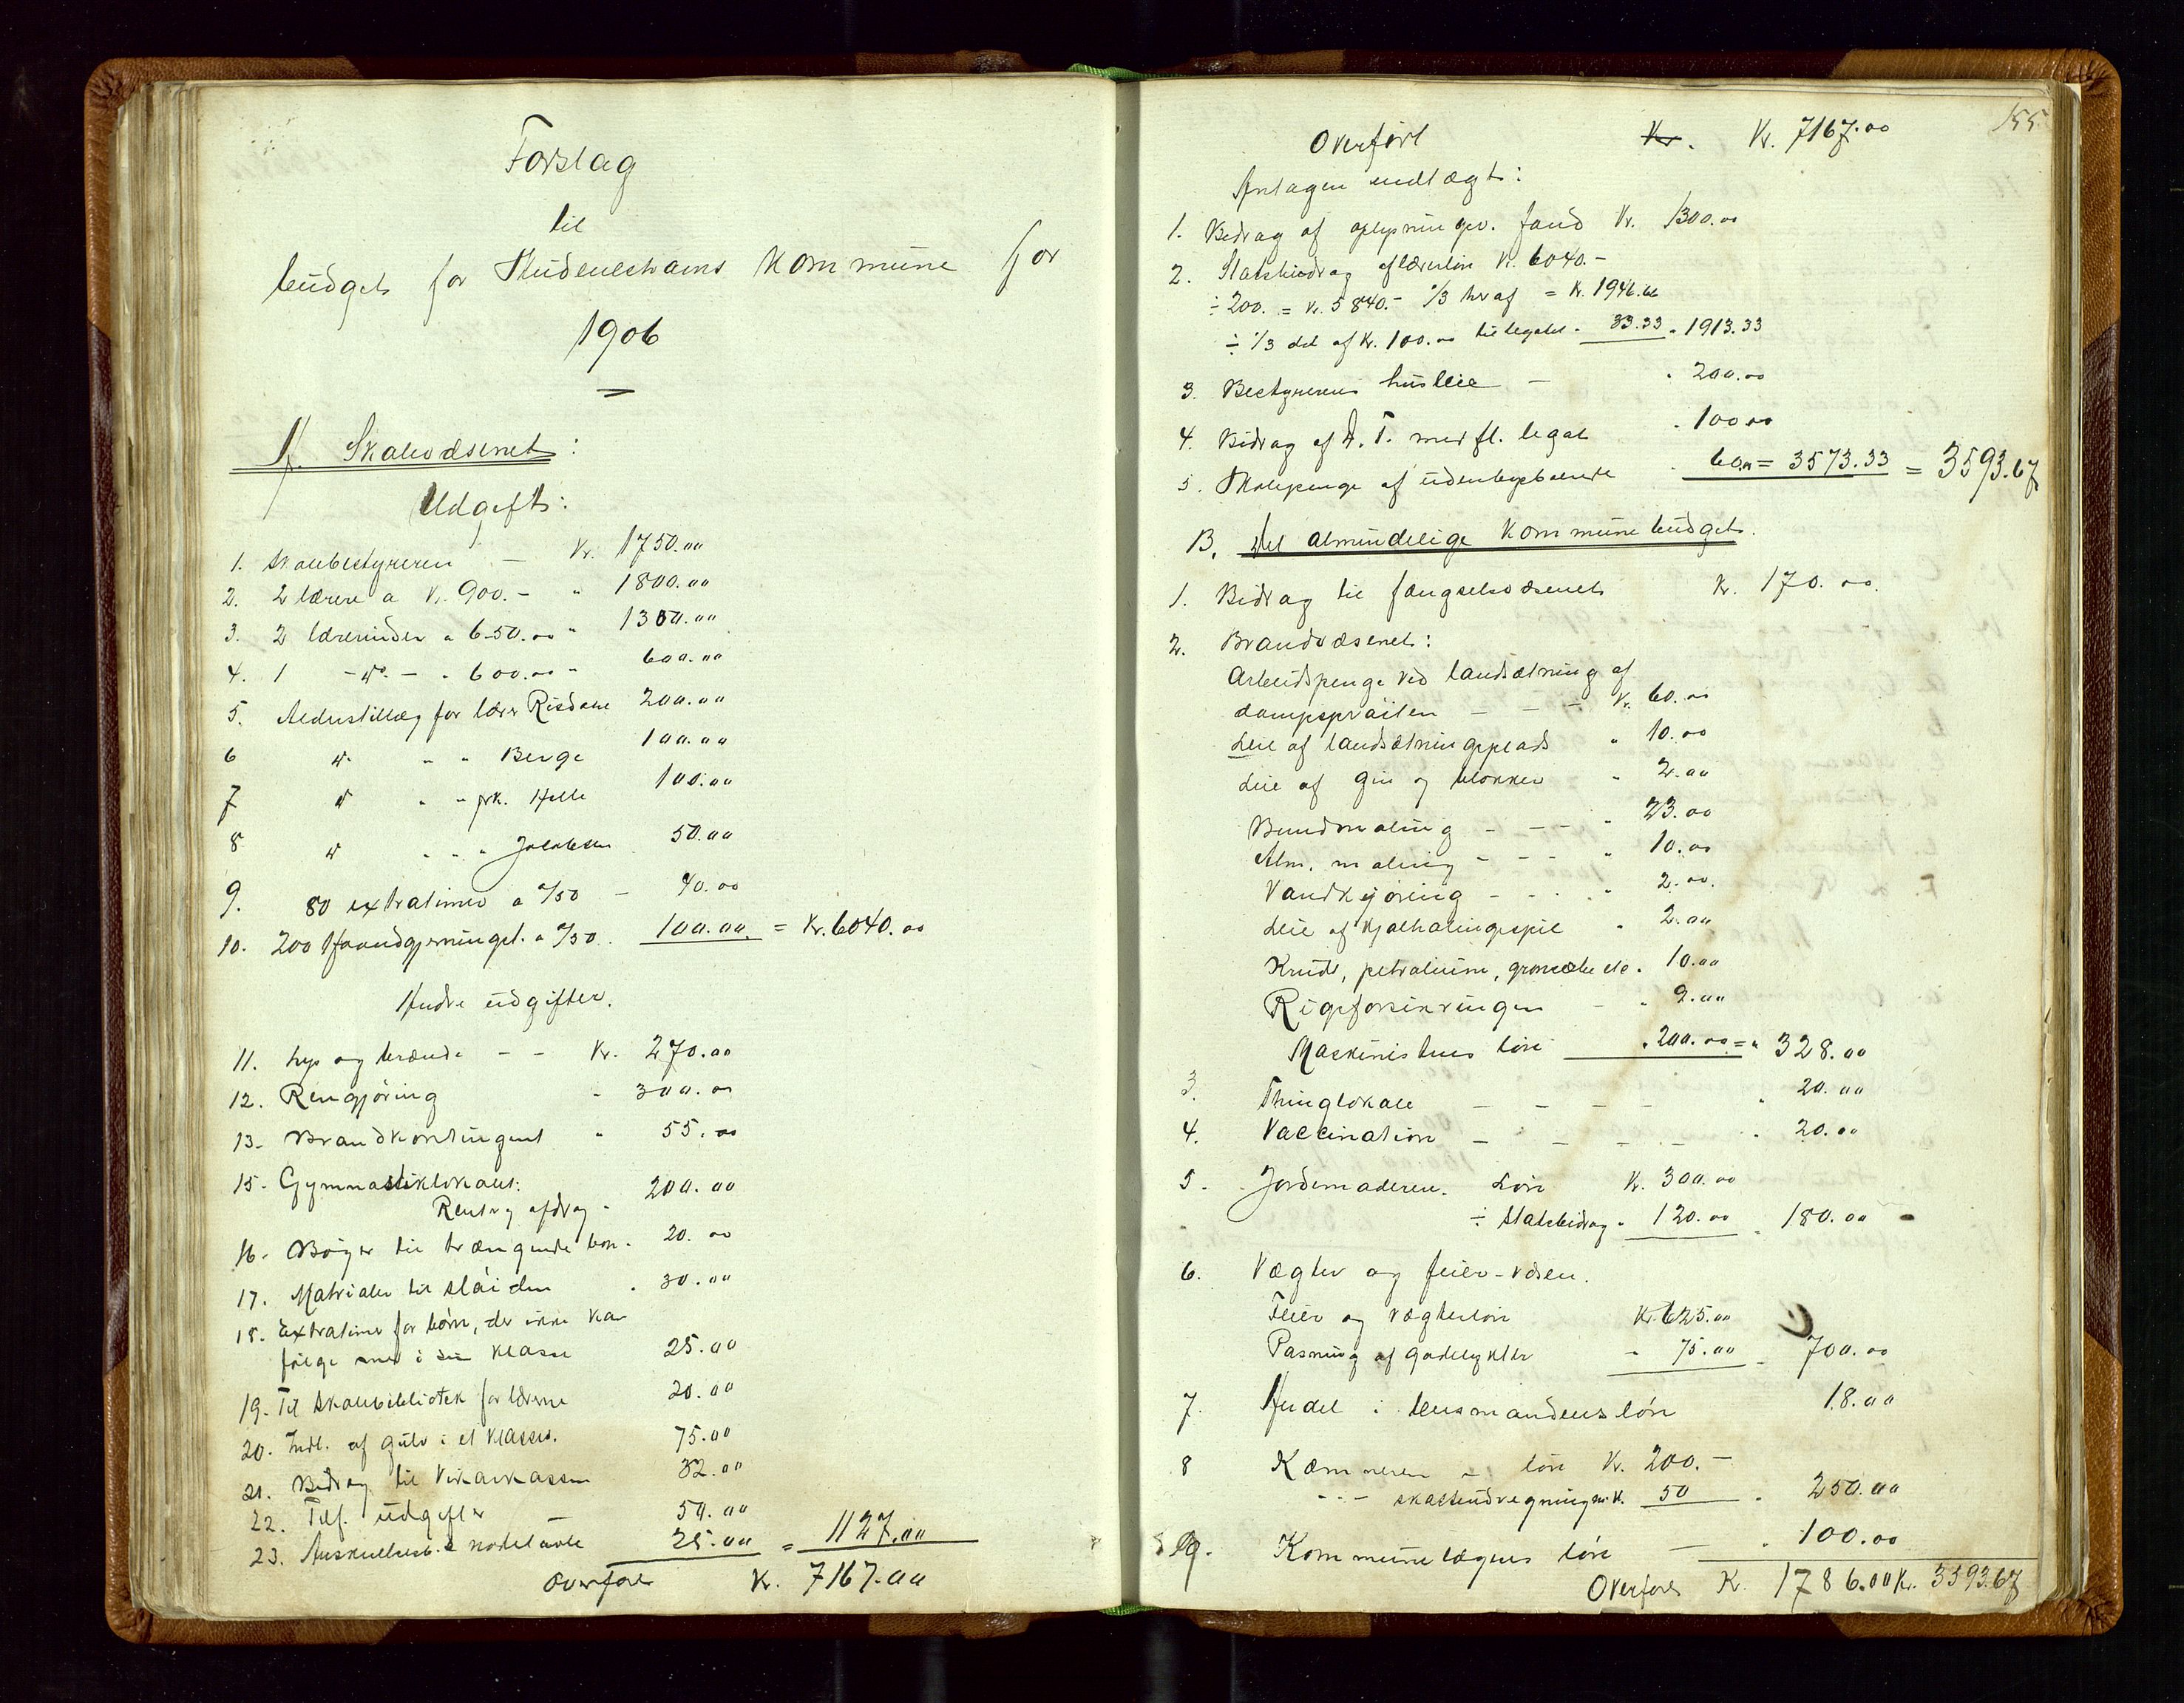 Forslag
til
budget for Skudeneshavns kommune for
1906
A. Skolevæsenet:
Udgift:
1. Skolebestyreren — Kr. 1750.00
2. 2 lærere a Kr. 900.- " 1800.00
3. 2 lærerinder a 650.00 " 1300.00
4. 1 - do - " 600.00 " 600.00
5. Alderstillæg for lærer Risdahl 200.00
6 do " " Berge 100.00
7 do " " frk. Helle 100.00
8 do " " " Jakobsen 50.00
9. 80 extratimer a 0/50 - 40.00
10. 200 Haandgjerningst. a 0/50. 100.00. = Kr. 6040.00
Andre udgifter.
11. Lys og brænde - - Kr. 270.00
12. Rengjøring " 300.00
13. Brandkontingent " 55.00
15. Gymnastiklokalet:
Rent og afdrag " 200.00
16. Bøger til trængende børn " 20.00
17. Matrialer til sløiden " 30.00
18. Extratimer for børn, der ikke kan
følge med i sin klasse 25.00
19. Til skolebibliotek for lærerne 20.00
20. Indl. af gulv i et klassev. 75.00
21. Bidrag til Vikarkassen 32.00
22. Telf. udgifter — 50.00
23. Anskuelsesb. & nodetavle 25.00 = 1127.00
Overføres Kr. 7167.00
155
Overført Kr. Kr. 7167.00
Antagen indtægt:
1. Bidrag af oplysningsv. fond Kr. 1300.00
2. Statsbidrag af lærerløn Kr. 6040.-
÷ 200. = Kr. 5840.- 1/3 heraf = Kr. 1946.66
÷ 1/3 del af Kr. 100.00 til legatet " 33.33 " 1913.33
3. Bestyrerens husleie — " 200.00
4. Bidrag af A. T. med fl. legat " 100.00
5. Skolepenge af udenbysboende " 60.00 = 3573.33 = 3593.67
B. Det almindelige kommunebudget.
1. Bidrag til fængselsvæsenet Kr. 170.00.
2. Brandvæsenet:
Arbeidspenge ved landsætning af
dampsprøiten - - - Kr. 60.00
Leie af landsætningsplads " 10.00
Leie af gin og blokker " 2.00
Bundmaling - - - " 23.00
Alm. maling - - - " 10.00
Vandkjøring - - - " 2.00.
Leie af Kjølhalingsspil " 2.00
Krudt, petroleum, grønsæbe etc. " 10.00
Rigsforsikringen - " 9.00
Maskinistens løn " 200.00 = " 328.00
3. Thinglokale - - - - " 20.00
4. Vaccination - - - - " 20.00
5. Jordemoderen. Løn Kr. 300.00
÷ Statsbidrag " 120.00 " 180.00
6. Vægter og feier-væsen.
Feier og vægterløn Kr. 625.00
Pasning af gadelygter " 75.00 " 700.00
7. Andel i lensmandens løn 18.00
8 Kæmneren - løn Kr. 200.-
" - - skatteudregning m.v. 50 " 250.00
9. Kommunelægens løn — " 100.00
Overføres Kr. 1786.00 Kr. 3593.67